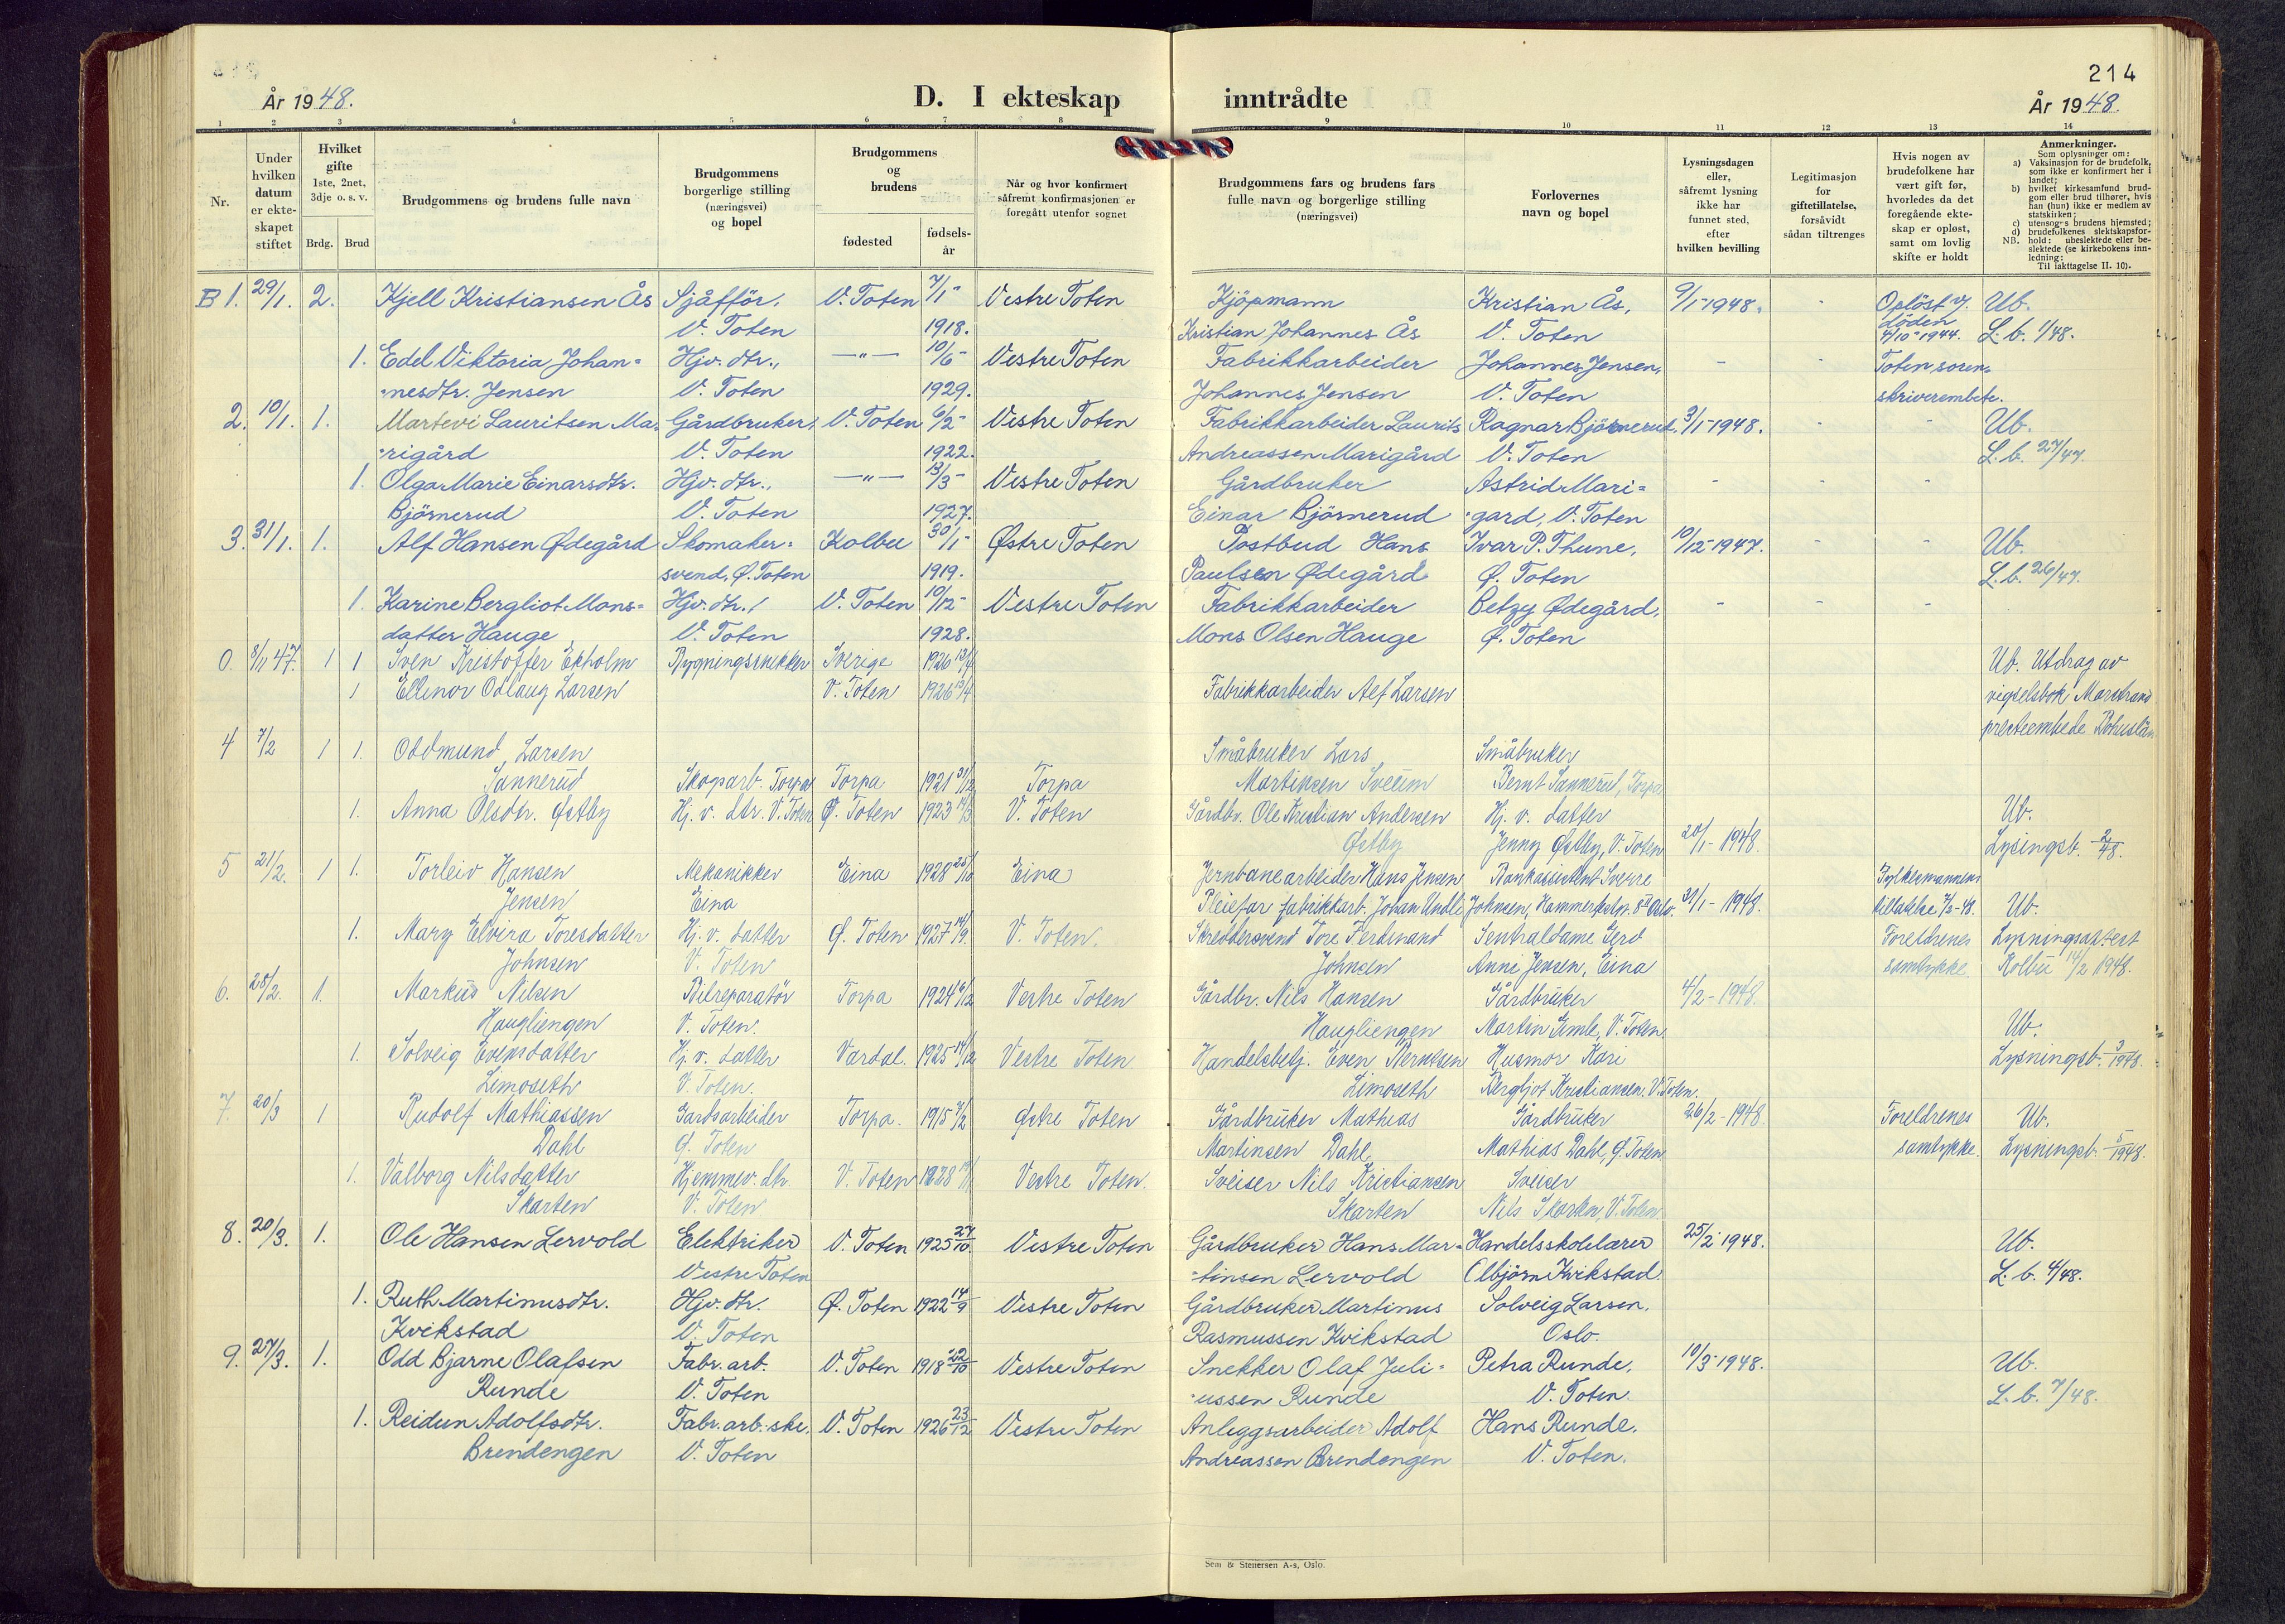 214
År 1948.
D. I ekteskap
inntrådte
År 1948.
1 2 3 4 5 6 7 8 9 10 11 12 13 14
Nr.
Under hvilken datum er ekte- skapet stiftet
Hvilket gifte 1ste, 2net, 3dje o. s. v.
Brdg. Brud
Brudgommens og brudens fulle navn
Brudgommens borgerlige stilling (næringsvei) og bopel
Brudgommens og brudens
fødested
fødsels- år
Når og hvor konfirmert såfremt konfirmasjonen er foregått utenfor sognet
Brudgommens fars og brudens fars fulle navn og borgerlige stilling (næringsvei)
Forlovernes navn og bopel
Lysningsdagen eller, såfremt lysning ikke har funnet sted, efter hvilken bevilling
Legitimasjon for giftetillatelse, forsåvidt sådan tiltrenges
Hvis nogen av brudefolkene har vært gift før, hvorledes da det foregående ekte- skap er opløst, samt om lovlig skifte er holdt
Anmerkninger.
Som oplysninger om:
a) Vaksinasjon for de brudefolk, som ikke er konfirmert her i landet;
b) hvilket kirkesamfund brud- gom eller brud tilhører, hvis han (hun) ikke er medlem av statskirken;
c) utensogns brudens hjemsted;
d) brudefolkenes slektskapsfor- hold: ubeslektede eller be- slektede (se kirkebokens inn- ledning:
NB.
Til iakttagelse II. 10).
B 1. 29/1. 2. Kjell Kristiansen Ås Sjåffør, V. Toten 7/1- Vestre Toten Kjøpmann Kristian Ås, 9/1-1948. - Opløst v. Ub.
V. Toten 1918. Kristian Johannes Ås V. Toten døden 4/10-1944. L.b. 1/48.
1. Edel Viktoria Johan= Hjv. dtr., —"— 10/6- Vestre Toten Fabrikkarbeider Johannes Jensen, - - Toten soren=
=nesdtr. Jensen V. Toten 1929. Johannes Jensen V. Toten skriverembete.
2. 10/1. 1. Martevi Lauritsen Ma= Gårdbruker, V. Toten 6/2- Vestre Toten Fabrikkarbeider Laurits Ragnar Bjørnerud, 3/1-1948. - - Ub.
=rigård V. Toten 1922. Andreassen Marigård V. Toten L.b. 27/47.
1. Olga Marie Einarsdtr. Hjv. dtr., —"— 13/3- Vestre Toten Gårdbruker Astrid Mari= - - -
Bjørnerud V. Toten 1927. Einar Bjørnerud =gard, V. Toten
3. 31/1. 1. Alf Hansen Ødegård Skomaker= Kolbu 30/1- Østre Toten Postbud Hans Ivar P. Thune, 10/12-1947. - - Ub.
svend, Ø. Toten 1919. Paulsen Ødegård Ø. Toten L.b. 26/47.
1. Karine Bergliot Mons= Hjv. dtr., V. Toten 10/12- Vestre Toten Fabrikkarbeider Betzy Ødegård, - - -
datter Hauge V. Toten 1928. Mons Olsen Hauge Ø. Toten
0. 8/11 47. 1 1 Sven Kristoffer Ekholm Bygningssnikker Sverige 1926 Ub. Utdrag av
1 Ellinor Odlaug Larsen V. Toten 1926 Fabrikkarbeider Alf Larsen vigselsbok Marstrand
presteembede Bohuslän
4 7/2 1 1. Oddmund Larsen Småbruker Lars Småbruker
Sannerud Skogarb. Torpa Torpa 1921 31/12 Torpa Martinsen Sveum Bernt Sannerud, Torpa
1. Anna Olsdtr. Østby Hj. v. dtr. V. Toten Ø. Toten 1923 V. Toten Gårdbr. Ole Kristian Andersen Hj. v. datter Ub.
Østby Jenny Østby, V. Toten 20/1-1948. Lysingsb. 2/48.
5 21/2. 1 1. Torleiv Hansen Mekanikker Eina 1928 25/10 Eina Jernbanearbeider Hans Jensen Bankassistent Sverre Fylkesmannens
Jensen Eina Pleiefar fabrikkarb. Johan Undli Johnsen, 31/1-1948. tillatelse 7/2-48. Ub.
1. Mary Elvira Toresdatter Hj. v. datter Ø. Toten 1927 14/9. V. Toten. Skreddersvend Tore Ferdinand Sentraldame Gerd Foreldrenes Lysningsattest
Johnsen V. Toten Johnsen Anni Jensen, Eina samtykke Kolbu 14/2 1948.
6. 28/2. 1. Markus Nilsen Bilreparatør Torpa 1924 6/12 Vestre Toten Gårdbr. Nils Hansen Gårdbruker 4/2-1948.
Haugliengen V. Toten. Haugliengen Martin Gimle, V. Toten. Ub.
1. Solveig Evensdatter Hj. v. datter Vardal. 1925 14/12 Vestre Toten Handelsbetj. Even Berntsen Husmor Kari Lysningsb. 3/1948.
Limoseth V. Toten. Limoseth Bergljot Kristiansen. V. Toten.
7. 20/3 1 Rudolf Mathiassen Gardsarbeider Torpa. 1915 7/2 Østre Toten Gårdbruker Mathias Gårdbruker 26/2-1948. Foreldrenes Ub.
Dahl Ø. Toten Martinsen Dahl Mathias Dahl, Ø. Toten samtykke. Lysningsb. 5/1948.
1. Valborg Nilsdatter Hjemmev. dtr. V. Toten 1928 Vestre Toten. Sveiser Nils Kristiansen Sveiser
Skarten V. Toten Skarten Nils Skarten V. Toten
8. 20/3. 1. Ole Hansen Lervold Elektriker V. Toten 1925 27/10 Vestre Toten Gårdbruker Hans Mar= Handelsskolelærer 25/2-1948. Ub.
Vestre Toten =tinsen Lervold Olbjørn Kvikstad. L.b. 4/48.
1. Ruth Martinusdtr. Hjv. dtr. Ø. Toten 1922 14/9 Vestre Toten Gårdbruker Martinus Solveig Larsen,
Kvikstad V. Toten Rasmussen Kvikstad Oslo
9. 27/3. 1. Odd Bjarne Olafsen Fabr. arb. V. Toten 1918 22/10 Vestre Toten Snekker Olaf Juli= Petra Runde, 10/3-1948. Ub.
Runde V. Toten =ussen Runde V. Toten. L.b. 7/48.
1. Reidun Adolfsdtr. Fabr. arb.ske. V. Toten 1926 23/12 Vestre Toten Anleggsarbeider Adolf Hans Runde.
Brendengen V. Toten Andreassen Brendengen V. Toten.
Sem & Stenersen A-s, Oslo.